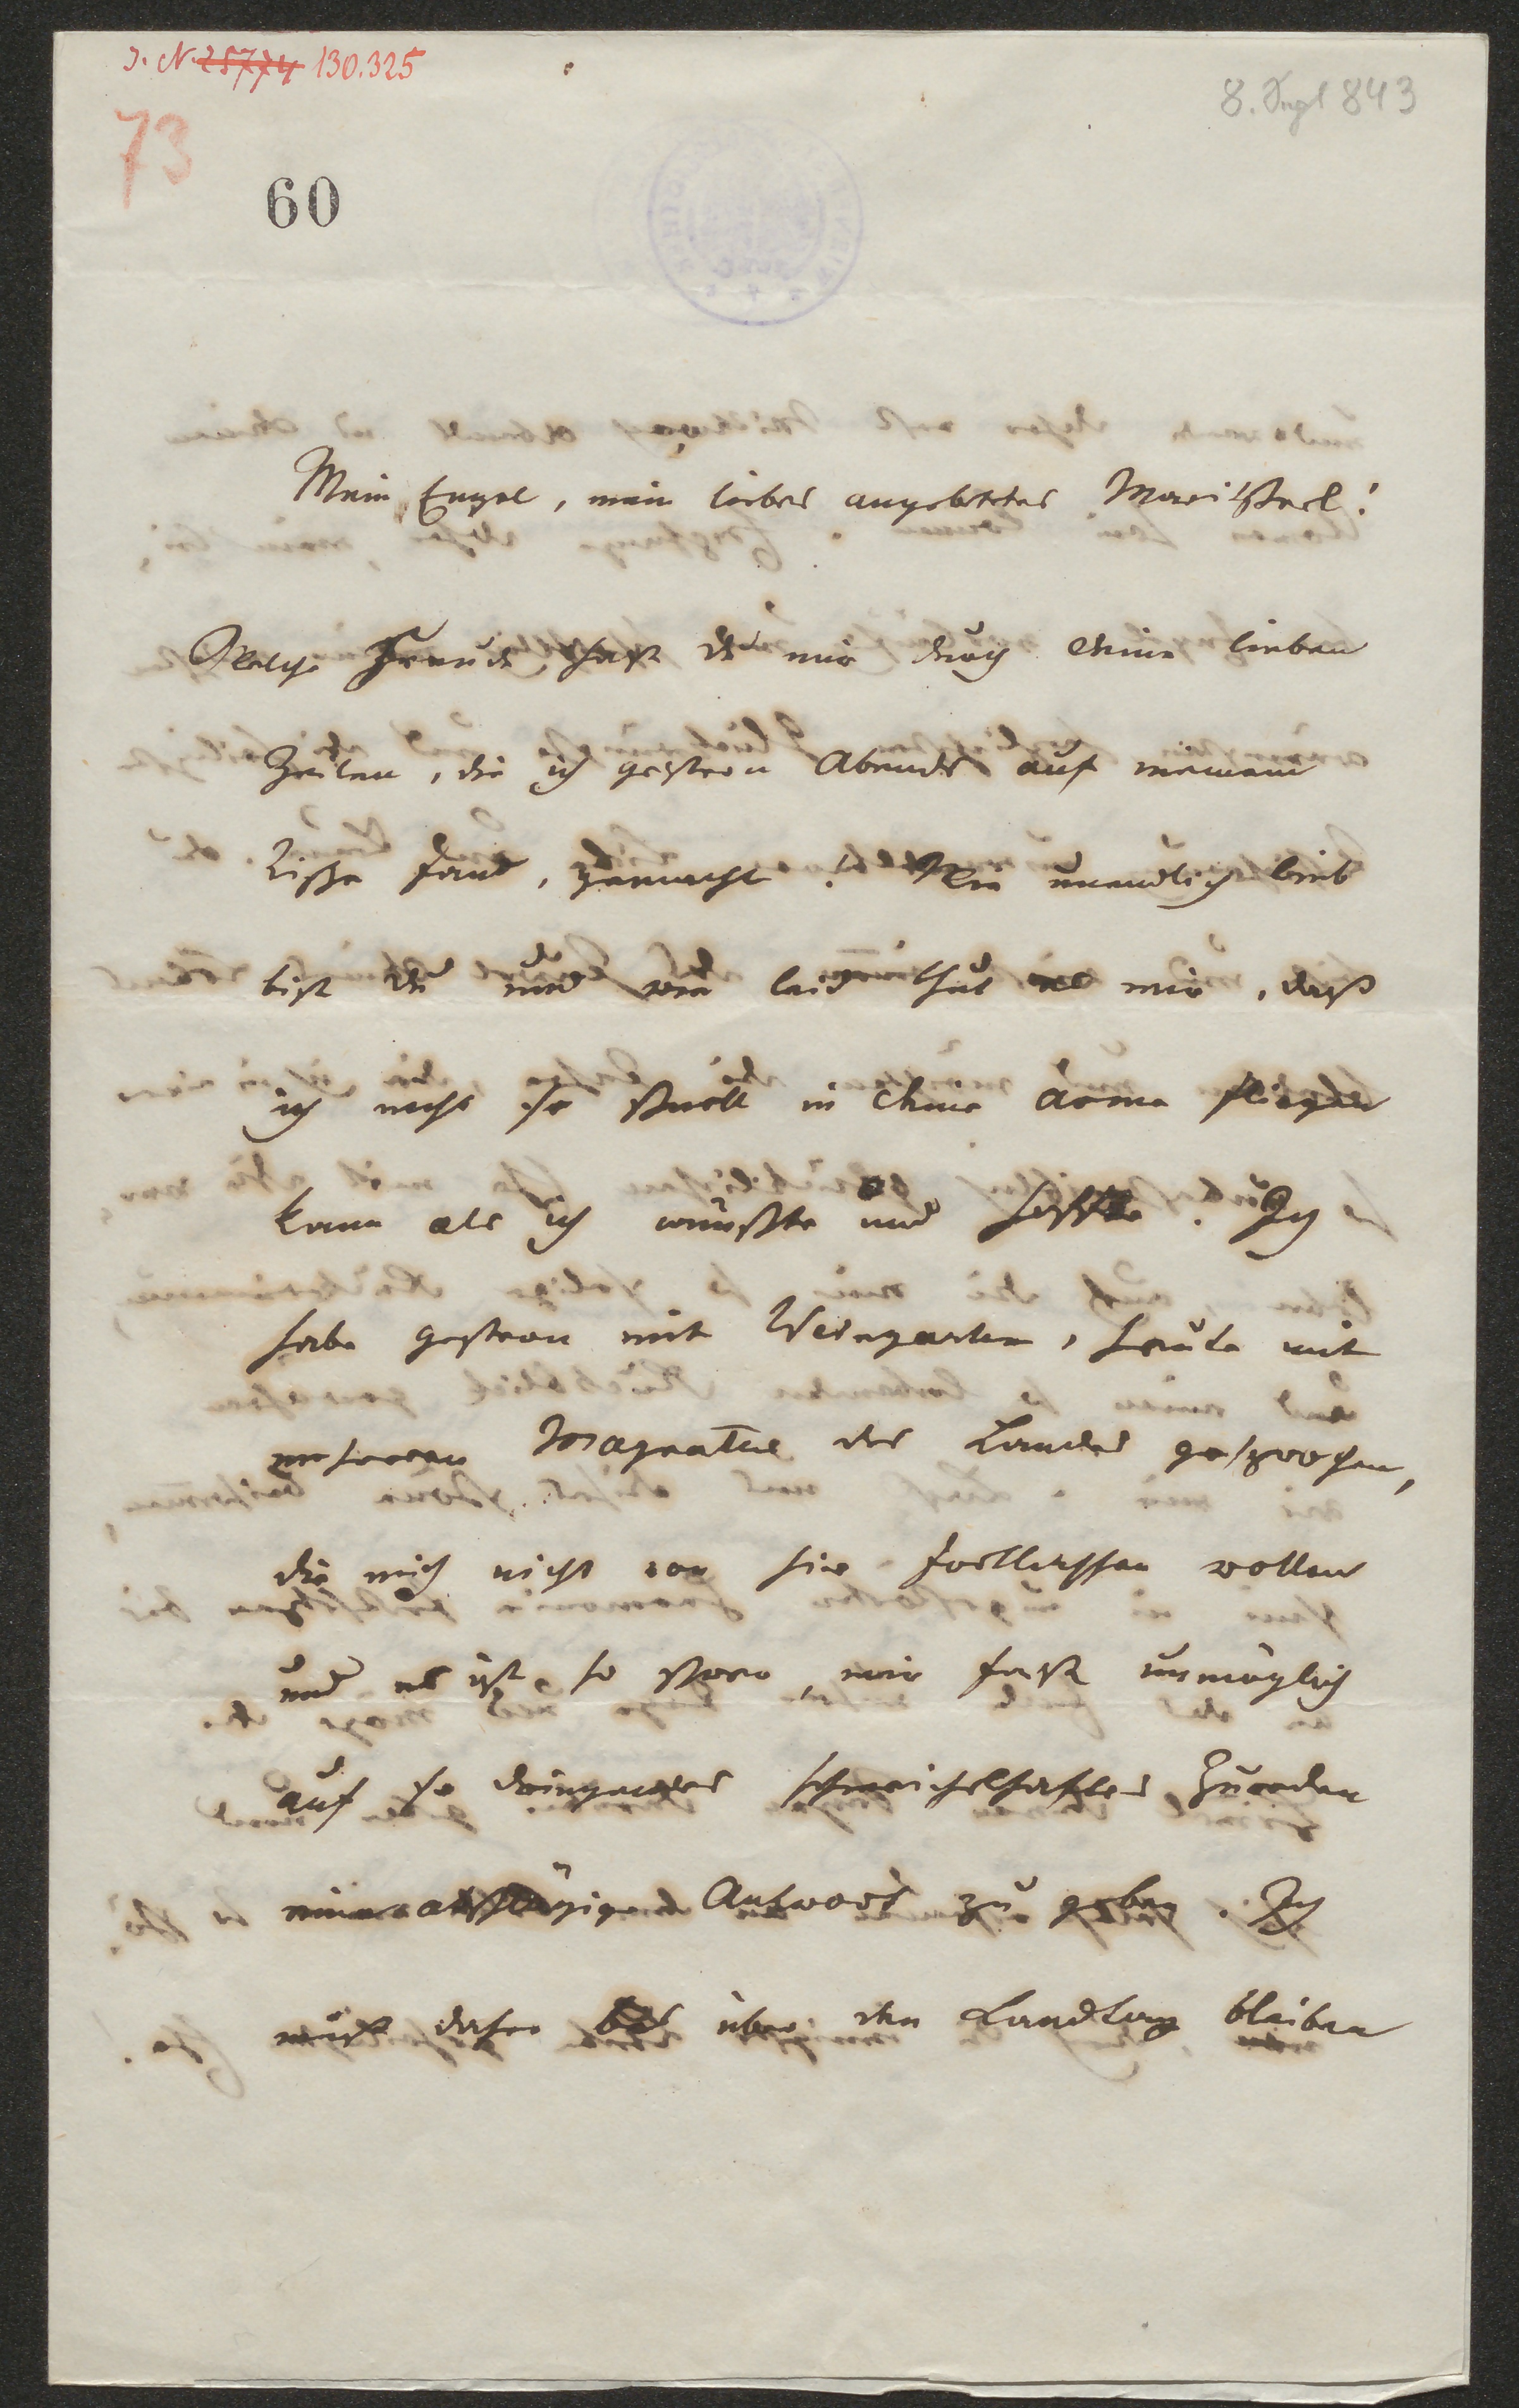 J. N. 25774 130.325
8. Sept 843
73
60
Mein Engel, mein liebes angebetetes
Welche Freude hast du mir durch deine lieben
Zeilen, die ich gestern Abends auf meinem
Tische fand, gemacht! Wie unendlich lieb
bist du und wie leid thut es mir, daß
ich nicht so schnell in deine Arme fliegen
kann als ich wünschte und hoffte. Ich
habe gestern mit Weingarten, heute mit
mehreren Magnaten des Landes gesprochen,
die mich nicht von hier fortlassen wollen
und es ist so schwer, mir fast unmöglich
auf so dringendes schmeichelhaftes Zureden
eine abschlägige Antwort zu geben. Ich
muß daher über den Landtag bleiben